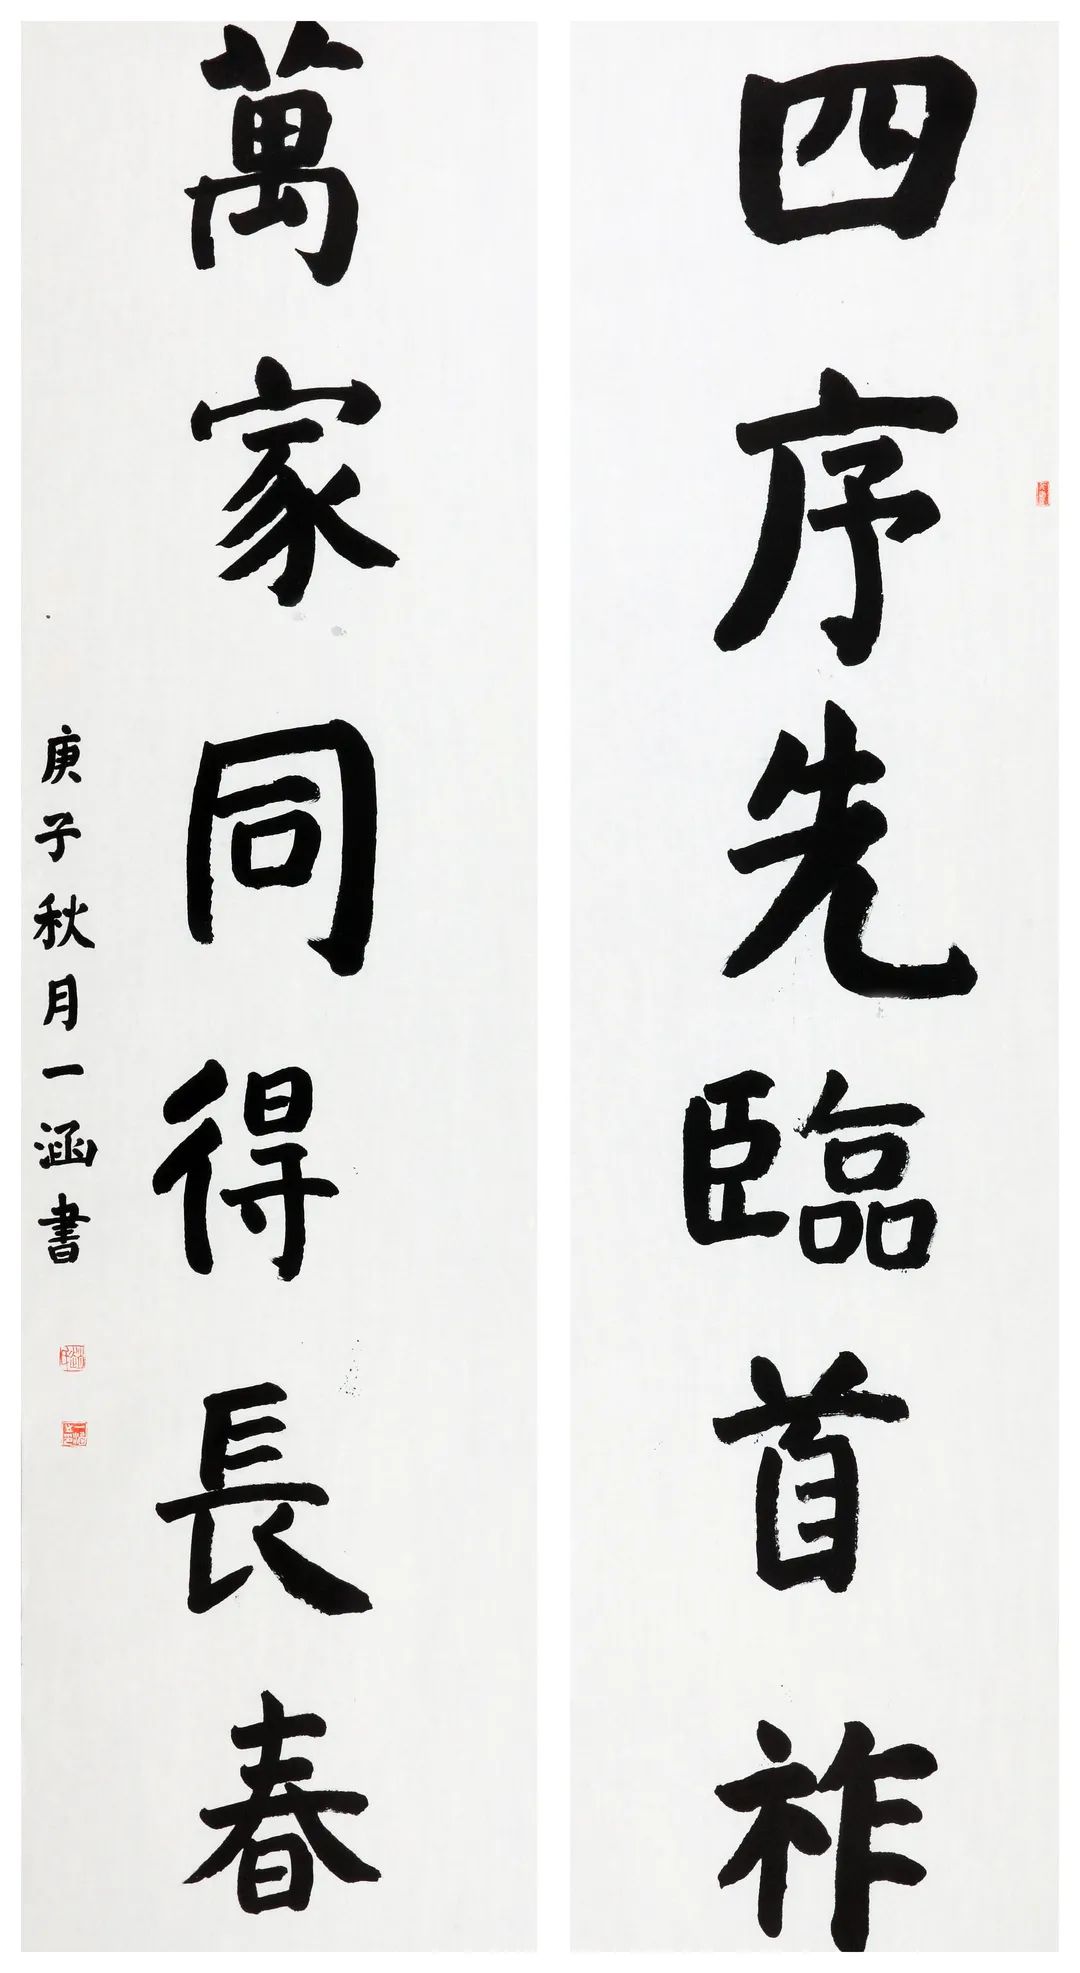 四序先臨首祚
萬家同得長春
庚子秋月一涵書